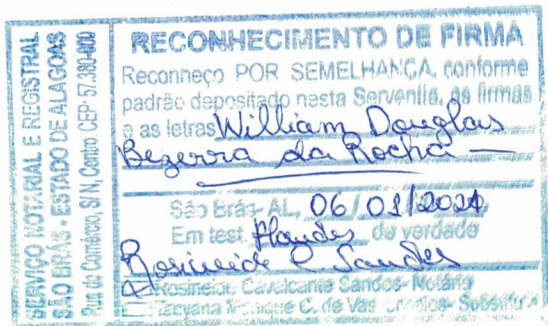 SERVIÇO NOTARIAL E REGISTRAL
SÃO BRÁS - ESTADO DE ALAGOAS
Rua do Comércio, S/N, Centro CEP 57.380-000
RECONHECIMENTO DE FIRMA
Reconheço POR SEMELHANÇA, conforme
padrão depositado nesta Serventia, as firmas
e as letras William Douglas
Bezerra da Rocha
São Brás- AL, 06/01/2021
Em test de verdade
Rosineide C. Sandes
Rosineide Cavalcante Sandes- Notária
C. de Vas - Substituta